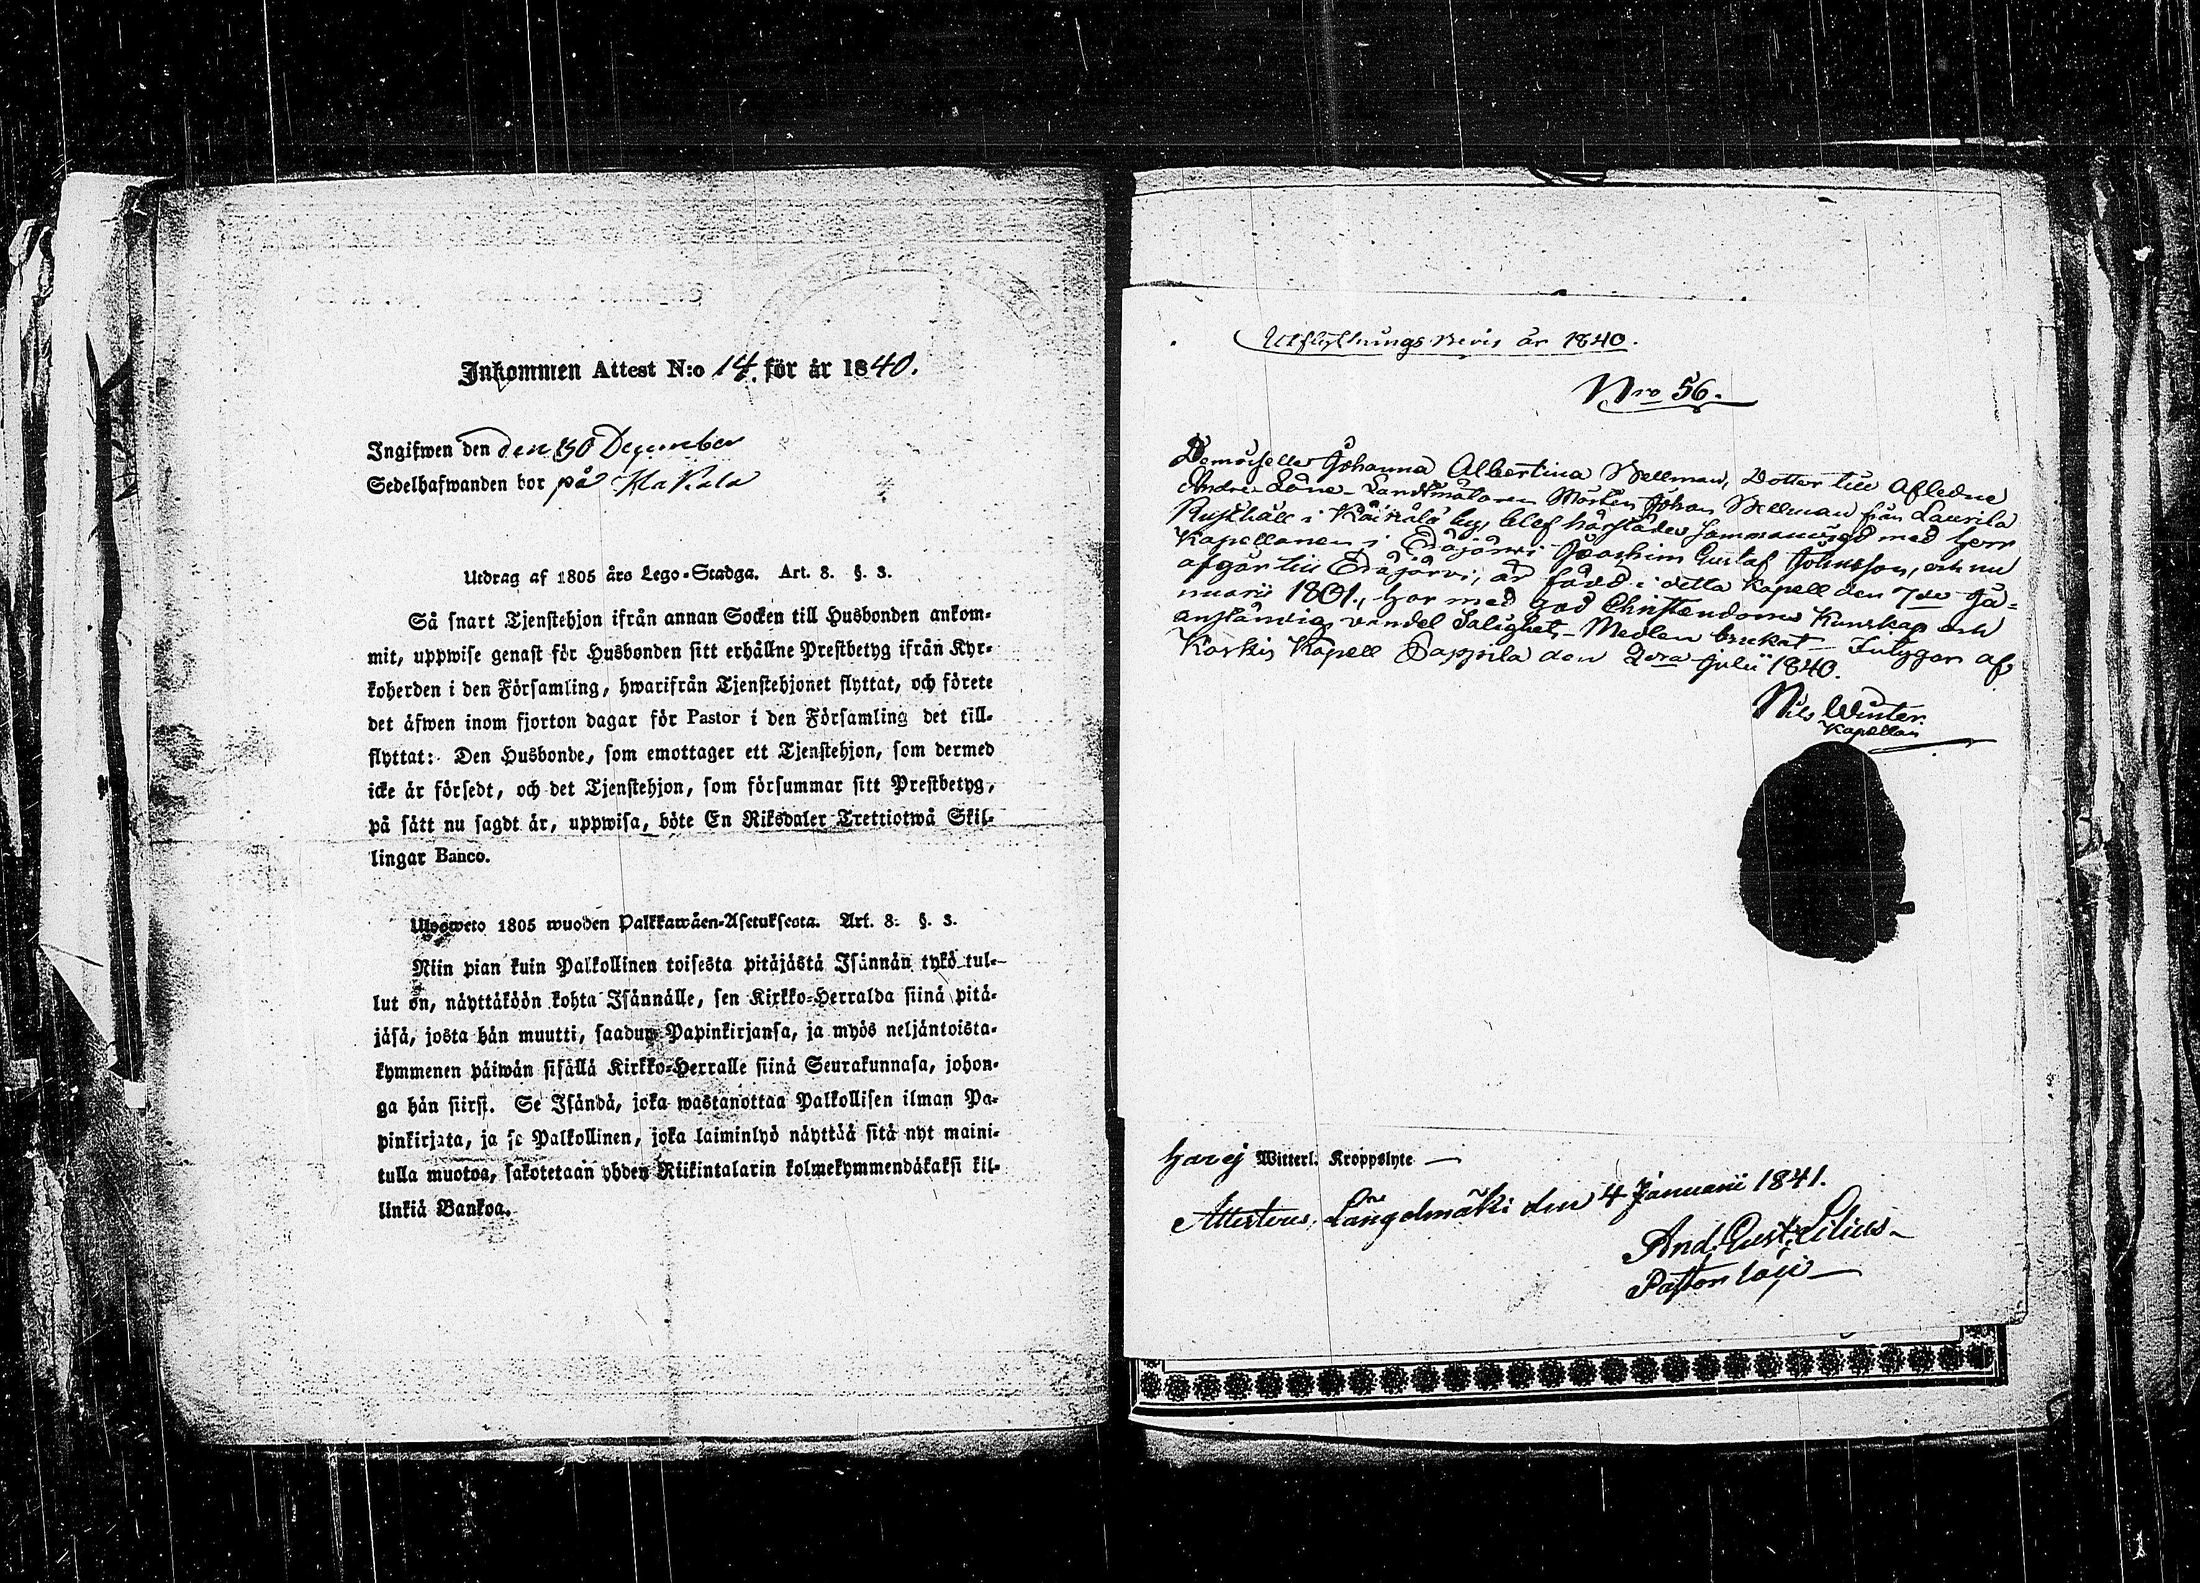 Inkommen Attest N:o 14. för år 1840.
Ingifwen den den 30 December
Sedelhafwanden bor på Hakala
Utdrag af 1805 års Lego-Stadga. Art. 8. §. 3.
Så snart Tjenstehjon ifrån annan Socken till Husbonden ankom-
mit, uppwise genast för Husbonden sitt erhållne Prestbetyg ifrån Kyr-
koherden i den Församling, hwarifrån Tjenstehjonet flyttat, och förete
det äfwen inom fjorton dagar för Pastor i den Församling det till-
flyttat: Den Husbonde, som emottager ett Tjenstehjon, som dermed
icke är försedt, och det Tjenstehjon, som försummar sitt Prestbetyg,
på sätt nu sagdt är, uppwisa, böte En Riksdaler Trettiotwå Skil-
lingar Banco.
Ulosweto 1805 wuoden Palkkawäen-Asetuksesta. Art. 8. §. 3.
Niin pian kuin Palkollinen toisesta pitäjästä Isännän tykö tul-
lut on, näyttäköön kohta Isännälle, sen Kirkko-Herralda siinä pitä-
jäsä, josta hän muutti, saadun Papinkirjansa, ja myös neljäntoista-
kymmenen päiwän sisällä Kirkko-Herralle siinä Seurakunnasa, johon-
ga hän siirsi. Se Isändä, joka wastanottaa Palkollisen ilman Pa-
pinkirjata, ja se Palkollinen, joka laiminlyö näyttää sitä nyt maini-
tulla muotoa, sakotetaan yhden Riikintalarin kolmekymmendäkaksi kil-
linkiä Bankoa.
Utflyttnings Bevis år 1840.
Nro 56.
Demoiselle Johanna Albertina Wellman, Dotter till Afledne
Andre Landtmätaren Mårten Johan Wellman från Laurila
Rusthåll i by, blef härstädes sammanvigd med herr
Kapellanen i Eräjärvi Joachim Gustaf Johnsson, och nu
afgår till Eräjärvi, är född i detta Kapell den 7de Ja-
nuarii 1801., har med god Christendoms Kunskap och
anständig vandel Salighets-Medlen brukat. Intygar af
Koskis Kapell Pappila den 2dra Julii 1840.
Nils Winter.
Kapellan
har ej Witterl: Kroppslyte —
Attesteras, Längelmäki den 4 Januarii 1841.
And. Gust. Lilius
Pastor loci